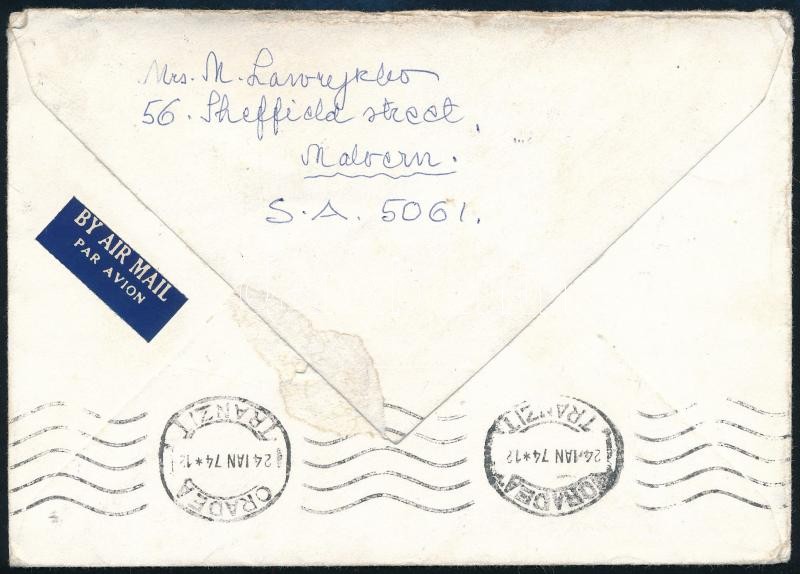 Mrs. M. Lawrykbo
56. Sheffield street,
Malvern.
S.A. 5061.
BY AIR MAIL
PAR AVION
ORADEA
24.IAN 74*12
TRANZIT
ORADEA
24.IAN 74*12
TRANZIT